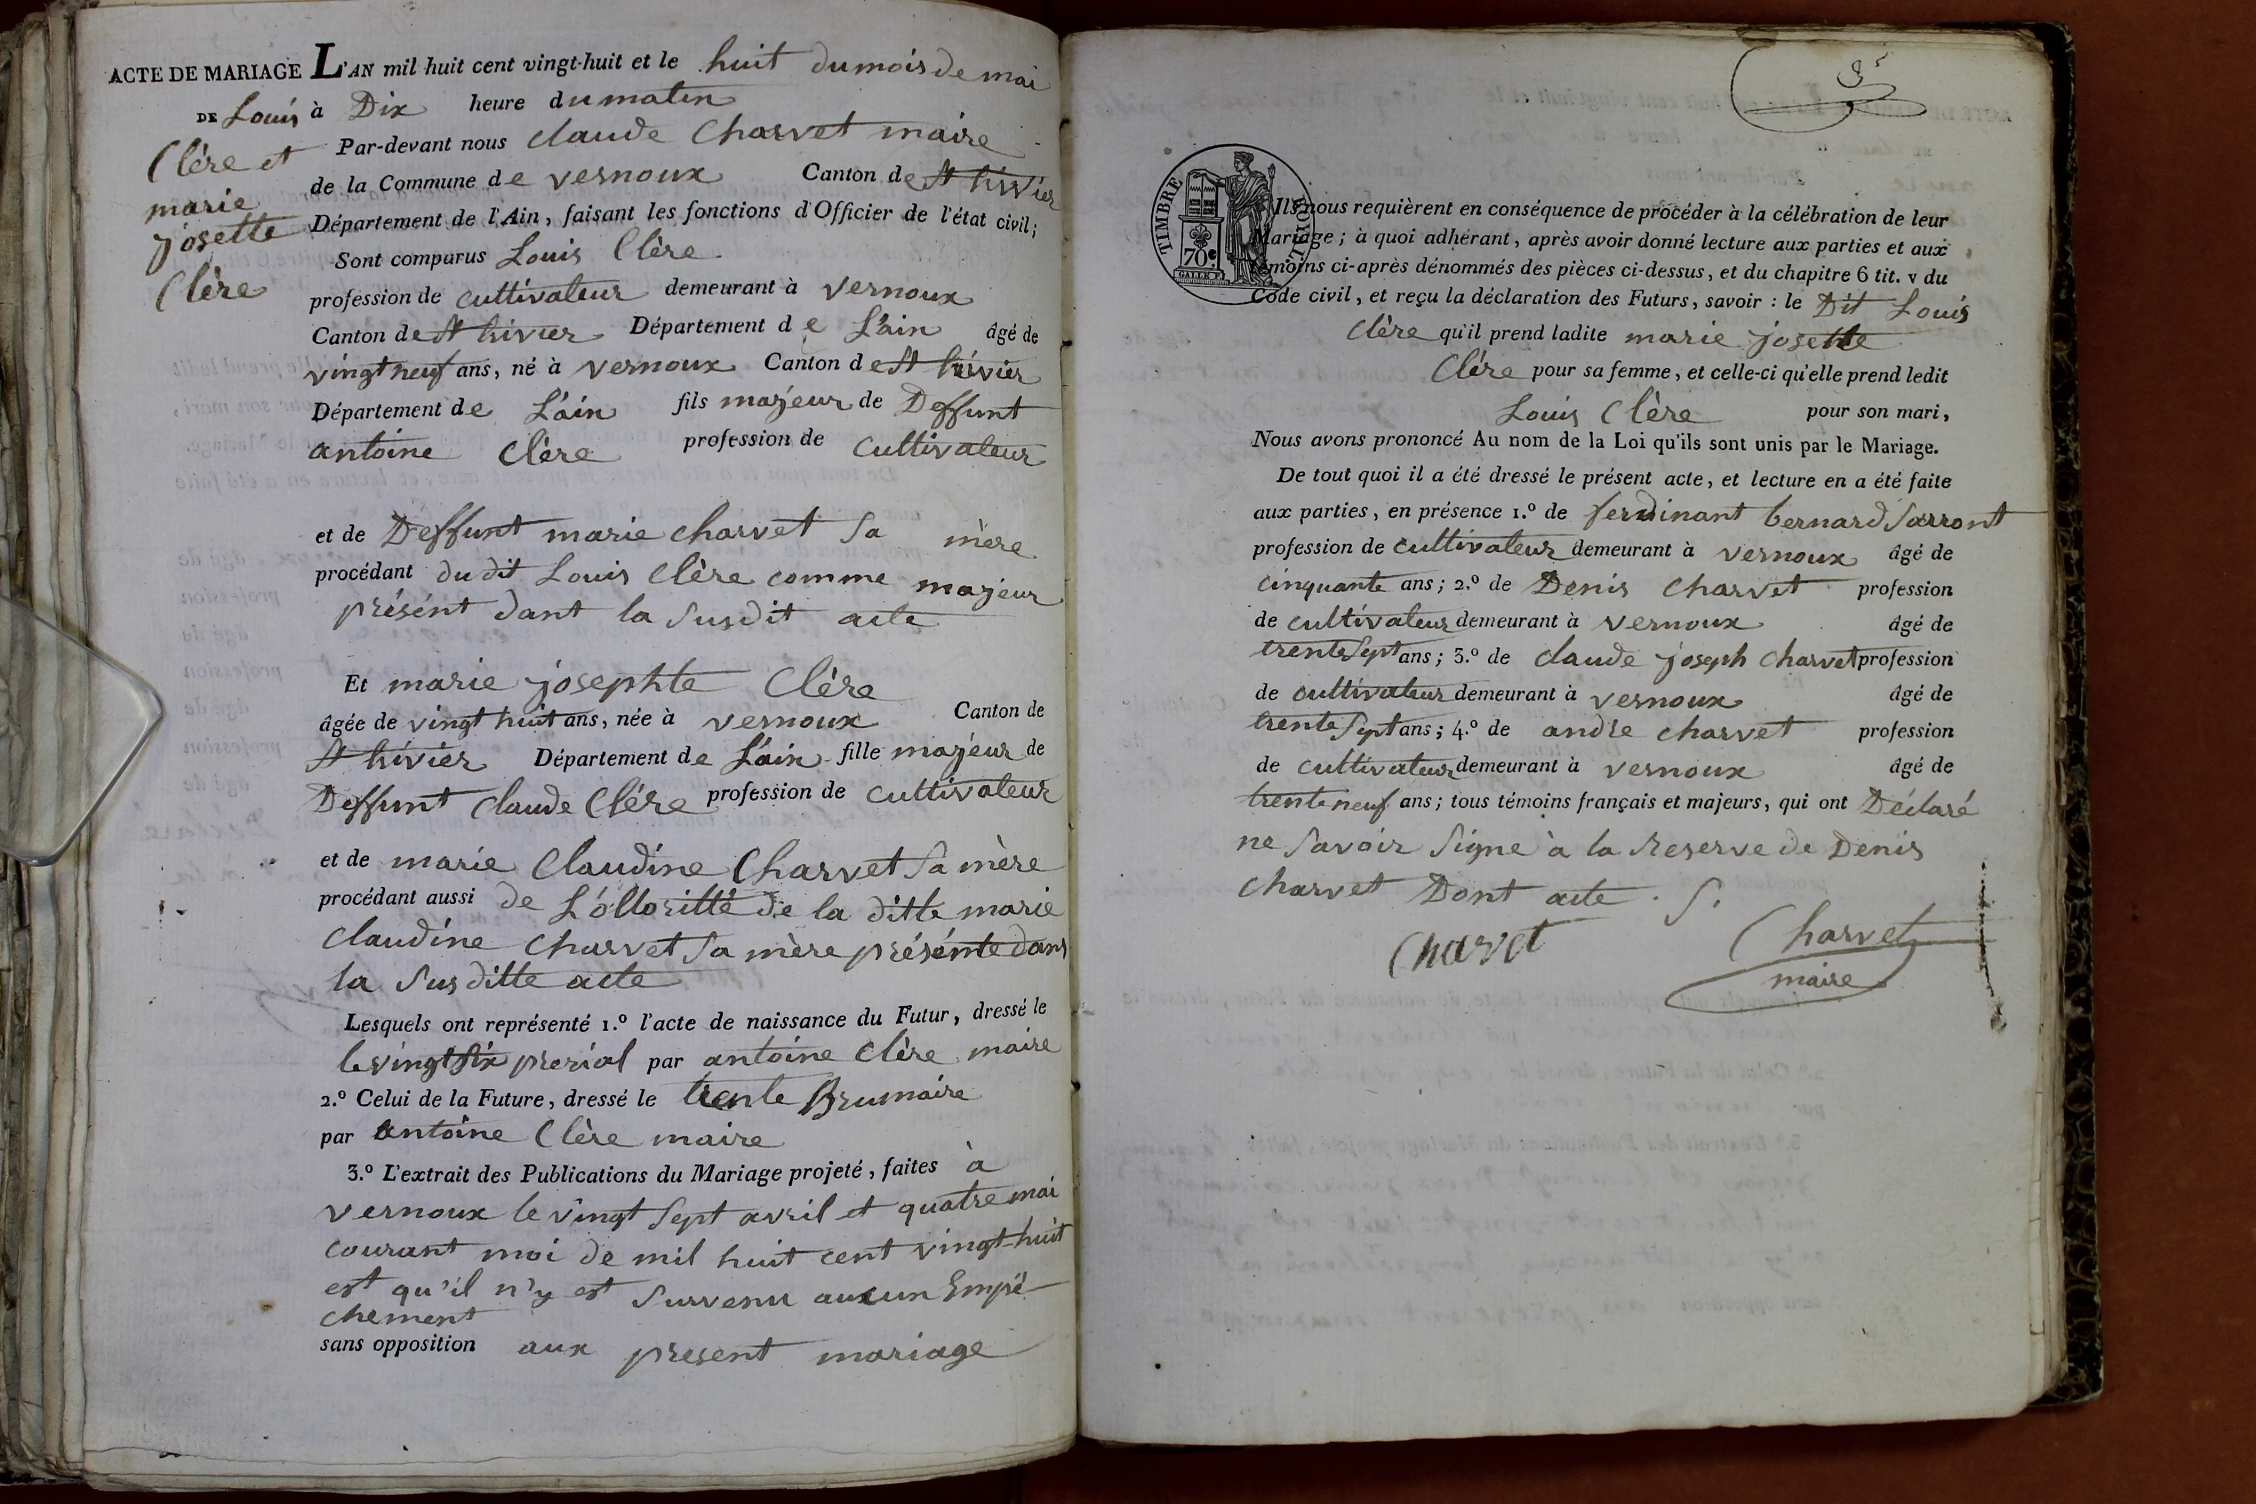 ACTE DE MARIAGE
DE Louis
Clère et
marie
josette
Clère
L'AN mil huit cent vingt-huit et le huit du mois de mai
à Dix heure du matin
Par-devant nous claude Charvet maire
de la Commune de vernoux Canton de St trivier
Département de l'Ain, faisant les fonctions d'Officier de l'état civil;
Sont comparus Louis Clère
profession de cultivateur demeurant à vernoux
Canton de St trivier Département de L'ain âgé de
vingt neuf ans, né à vernoux Canton de St trivier
Département de L'ain fils majeur de Deffunt
antoine Clère profession de cultivateur
et de Deffunt marie charvet sa mère
procédant du dit Louis Clère comme majeur
présént dant la susdit acte
Et marie josephte Clère
âgée de vingt huit ans, née à vernoux Canton de
St trivier Département de L'ain fille majeur de
Deffunt Claude Clère profession de cultivateur
et de marie Claudine Charvet sa mère
procédant aussi de L'ottoritté de la ditte marie
claudine charvet sa mère présénte dans
la susditte acte
Lesquels ont représenté 1.º l'acte de naissance du Futur, dressé le
le vingt six prerial par antoine Clère maire
2.º Celui de la Future, dressé le trente Brumaire
par antoine Clère maire
3.º L'extrait des Publications du Mariage projeté, faites à
vernoux le vingt sept avril et quatre mai
courant moi de mil huit cent vingt-huit
est qu'il n'y est survenu aucun Empê-
chement
sans opposition aux present mariage
TIMBRE ROYAL
70 c
GALLE F.
Ils nous requièrent en conséquence de procéder à la célébration de leur
Mariage; à quoi adhérant, après avoir donné lecture aux parties et aux
témoins ci-après dénommés des pièces ci-dessus, et du chapitre 6 tit. v du
Code civil, et reçu la déclaration des Futurs, savoir: le Dit Louis
Clère qu'il prend ladite marie josette
Clère pour sa femme, et celle-ci qu'elle prend ledit
Louis Clère pour son mari,
Nous avons prononcé Au nom de la Loi qu'ils sont unis par le Mariage.
De tout quoi il a été dressé le présent acte, et lecture en a été faite
aux parties, en présence 1.º de ferdinant bernard Sarront
profession de cultivateur demeurant à vernoux âgé de
cinquante ans; 2.º de Denis Charvet profession
de cultivateur demeurant à vernoux âgé de
trente sept ans; 3.º de claude joseph charvet profession
de cultivateur demeurant à vernoux âgé de
trente sept ans; 4.º de andre charvet profession
de cultivateur demeurant à vernoux âgé de
trente neuf ans; tous témoins français et majeurs, qui ont Déclaré
ne savoir signe à la reserve de Denis
charvet Dont acte . S.
Charvet
Charvet
maire